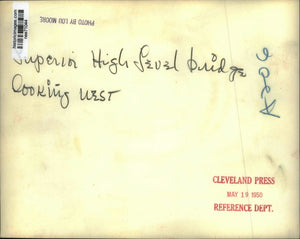 PHOTO BY LOU MOORE
Superior High Level bridge
looking west
CLEVELAND PRESS
MAY 19 1950
REFERENCE DEPT.